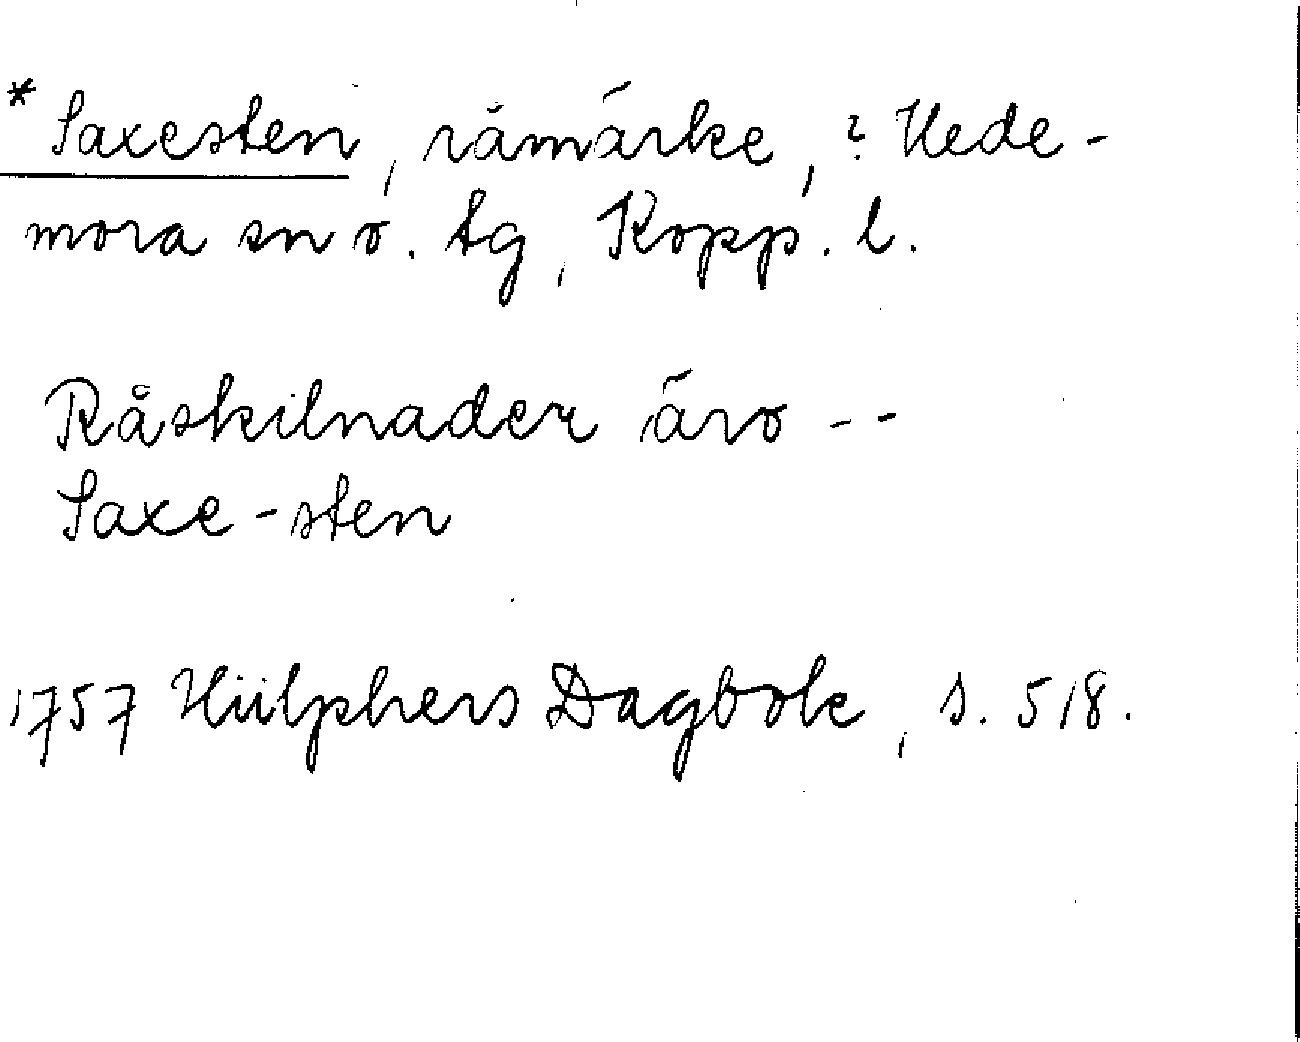 * Saxesten, råmärke, ? Hede-
mora sn o. tg, Kopp. l.
Råskilnader äro --
Saxe-sten
1757 Hülphers Dagbok, s. 518.